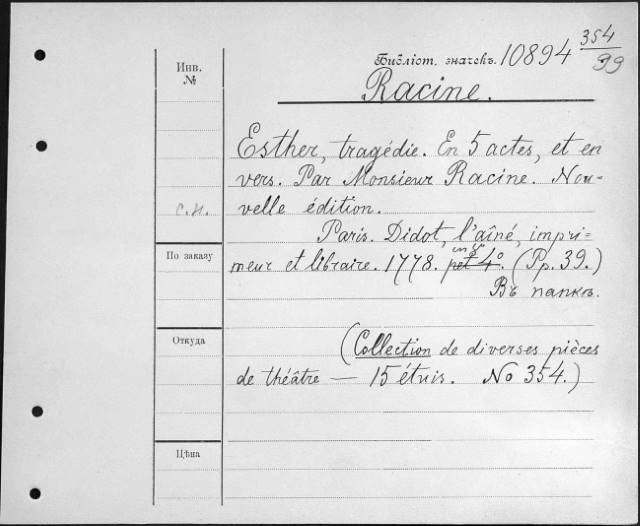 Инв.
№
Библіот. значекъ. 10894 354/99
Racine.
Esther, tragédie. En 5 actes, et en
vers. Par Monsieur Racine. Nou-
с.н. velle édition.
Paris. Didot, l'aîné, impri=
По заказу
in 8°
meur et libraire. 1778. pet 4°. (Pp. 39.)
Въ папкѣ.
Откуда
(Collection de diverses pièces
de théâtre — 15 étuis. No 354.)
Цѣна